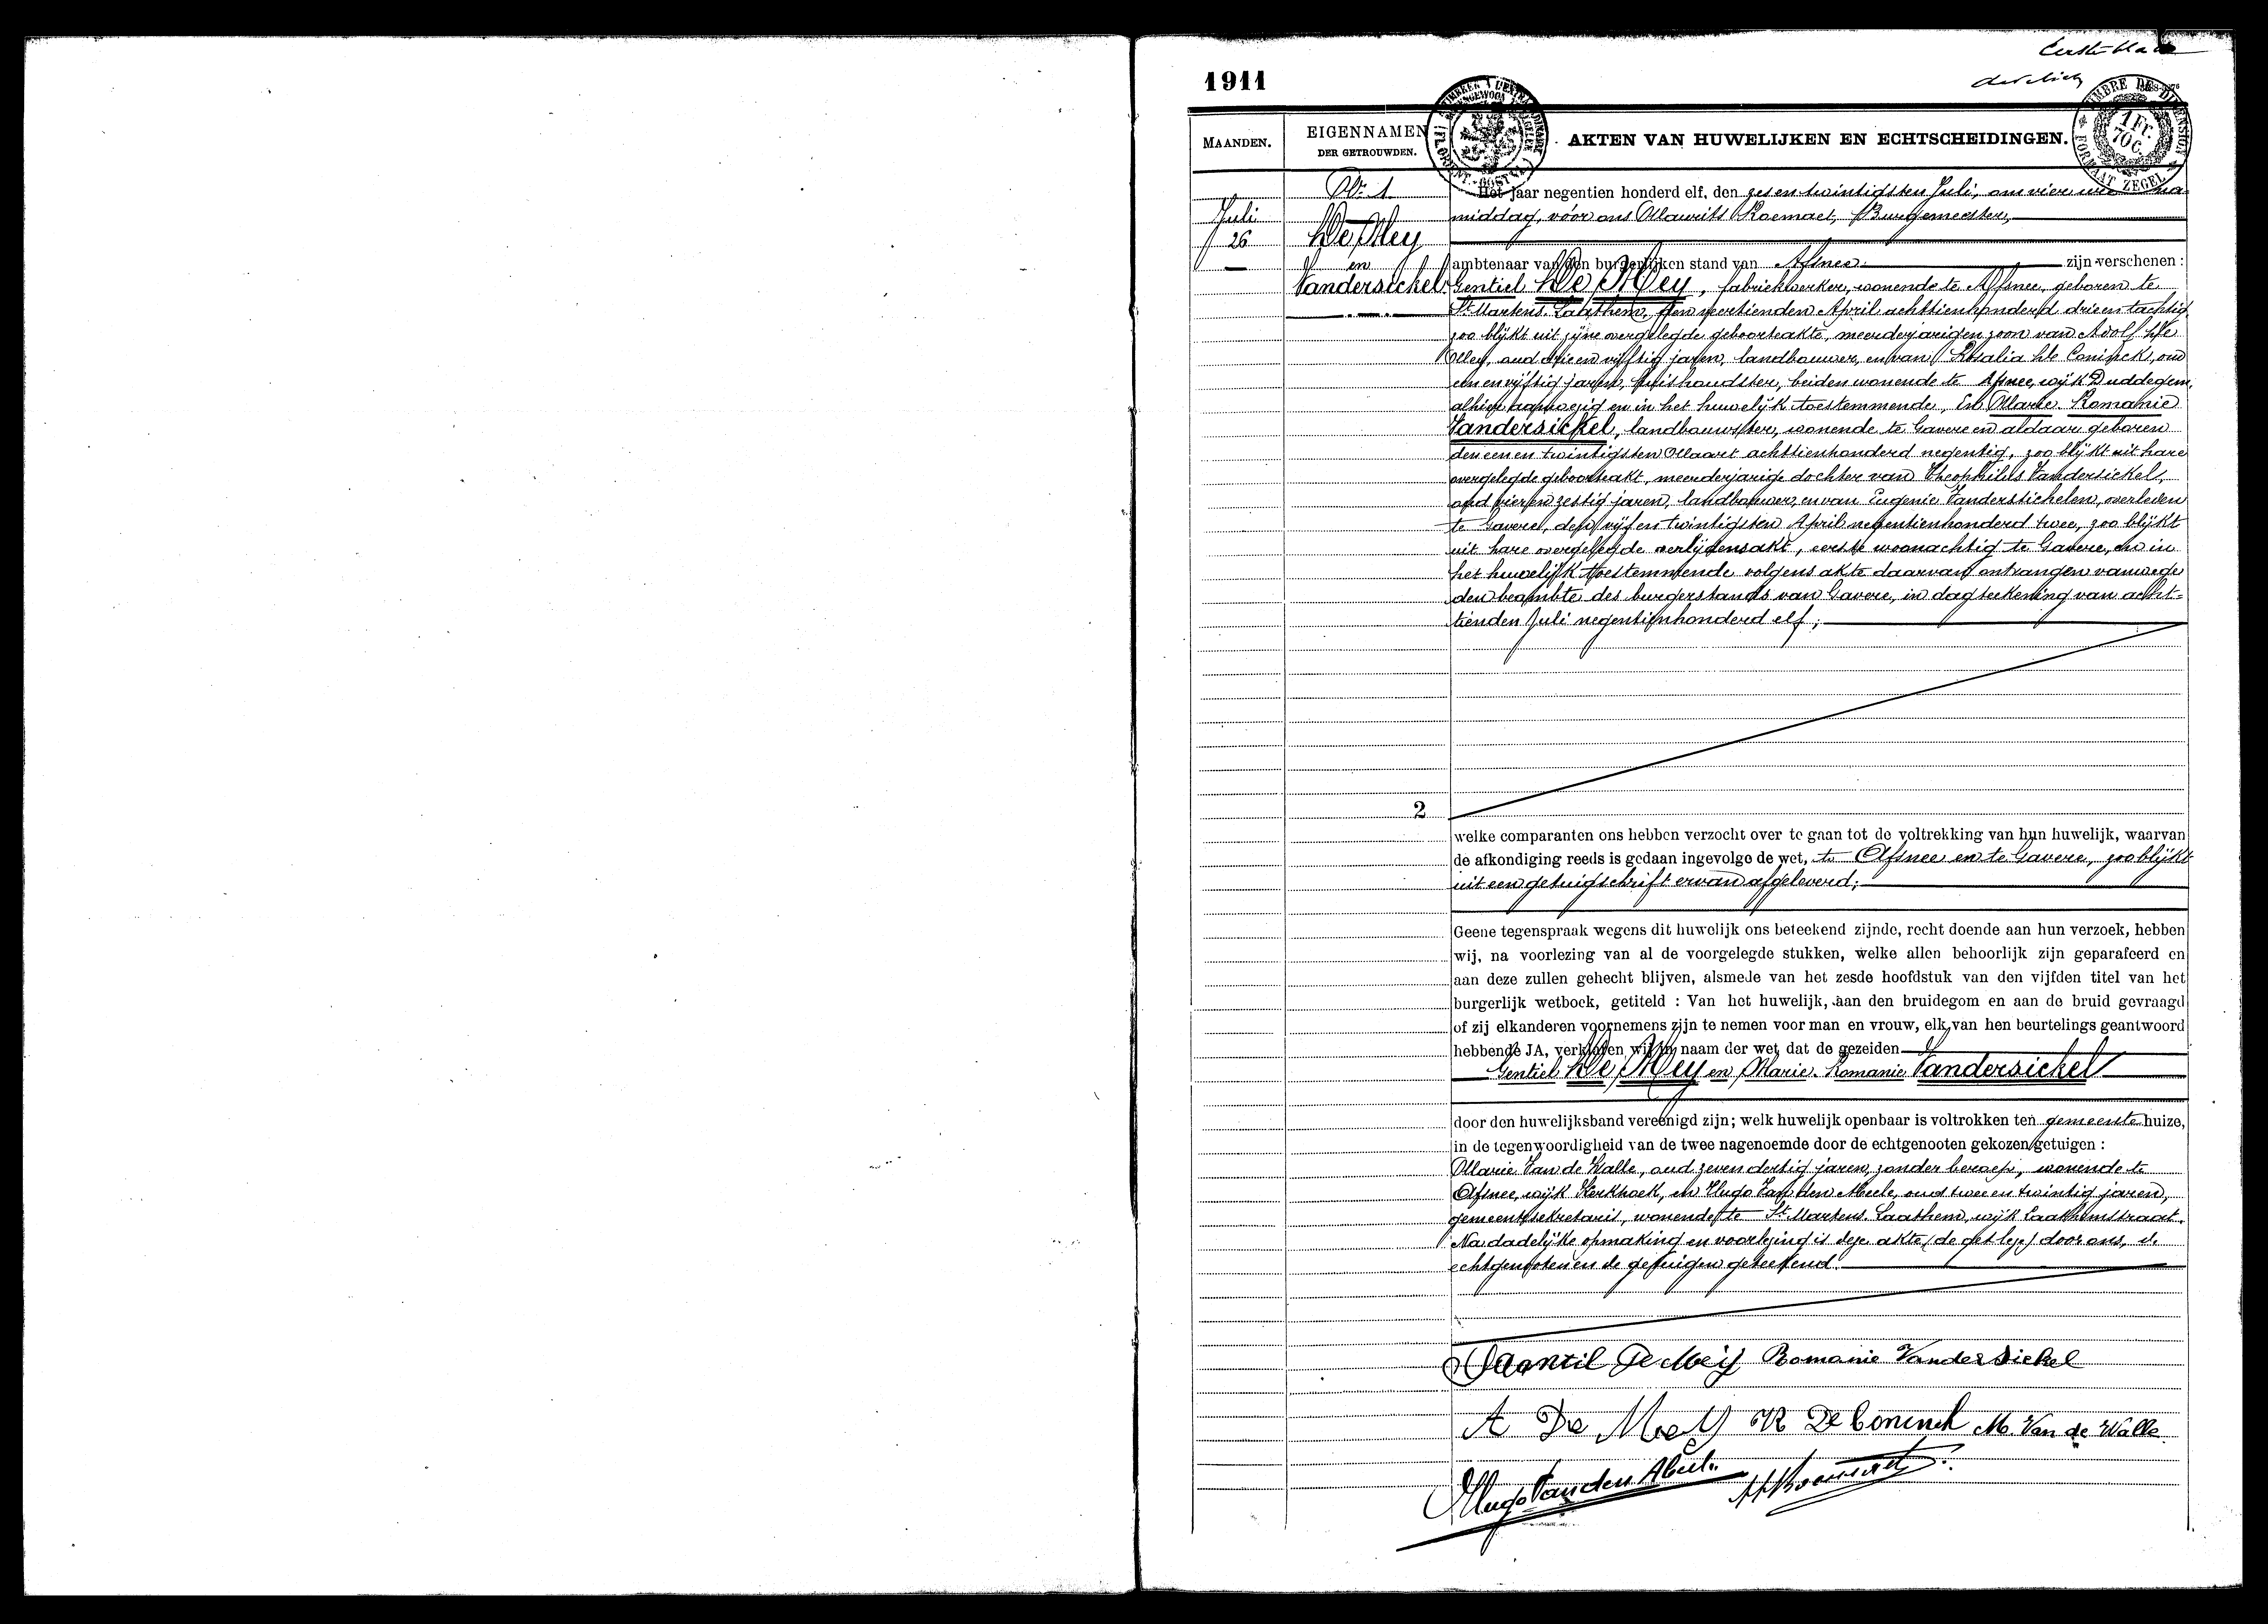 Eerste blad
1911
MAANDEN.
EIGENNAMEN
DER GETROUWDEN.
AKTEN VAN HUWELIJKEN EN ECHTSCHEIDINGEN.
TIMBRE DE DIMENSION
1 Fr. 70 C.
FORMAAT ZEGEL
Nr. 1
Juli
26
De Mey
en
Vandersickel.
Het jaar negentien honderd elf, den zes en twintigsten Juli, om vier ure na
middag, vóór ons Maurits Roemaet, Burgemeester,
ambtenaar van den burgerlijken stand van Afsnee zijn verschenen :
Gentiel De Mey, fabriekwerker, wonende te Afsnee, geboren te
St Martens-Laathem, den veertienden April achttienhonderd drie en tachtig,
zoo blijkt uit zijne overgelegde geboorteakte, meerderjarigen zoon van Adolf De
Mey, oud drie en vijftig jaren, landbouwer, en van Rosalia De Coninck, oud
een en vijftig jaren, huishoudster, beiden wonende te Afsnee, wijk Duddegem,
alhier aanwezig en in het huwelijk toestemmende, En Marie-Romanie
Vandersickel, landbouwster, wonende te Gavere en aldaar geboren
den een en twintigsten Maart achttienhonderd negentig, zoo blijkt uit hare
overgelegde geboorteakt, meerderjarige dochter van Theophilus Vandersickel,
oud vier en zestig jaren, landbouwer, en van Eugenie Vanderstichelen, overleden
te Gavere, den vijf en twintigsten April negentienhonderd twee, zoo blijkt
uit hare overgelegde overlijdensakt, eerste woonachtig te Gavere, en in
het huwelijk toestemmende volgens akte daarvan ontvangen vanwege
den beambte des burgerstands van Gavere, in dagteekening van acht-
tienden Juli negentienhonderd elf;
2
welke comparanten ons hebben verzocht over te gaan tot de voltrekking van hun huwelijk, waarvan
de afkondiging reeds is gedaan ingevolge de wet, te Afsnee en te Gavere, zoo blijkt
uit een getuigschrift ervan afgeleverd;
Geene tegenspraak wegens dit huwelijk ons beteekend zijnde, recht doende aan hun verzoek, hebben
wij, na voorlezing van al de voorgelegde stukken, welke allen behoorlijk zijn geparafeerd en
aan deze zullen gehecht blijven, alsmede van het zesde hoofdstuk van den vijfden titel van het
burgerlijk wetboek, getiteld : Van het huwelijk, aan den bruidegom en aan de bruid gevraagd
of zij elkanderen voornemens zijn te nemen voor man en vrouw, elk van hen beurtelings geantwoord
hebbende JA, verklaren wij in naam der wet, dat de gezeiden
Gentiel De Mey en Marie-Romanie Vandersickel
door den huwelijksband vereenigd zijn; welk huwelijk openbaar is voltrokken ten gemeentehuize,
in de tegenwoordigheid van de twee nagenoemde door de echtgenooten gekozen getuigen :
Marie Van de Walle, oud zeven dertig jaren, zonder beroep, wonende te
Afsnee, wijk Kerkhoek, en Hugo Van den Abeele, oud twee en twintig jaren,
gemeentesekretaris, wonende te St Martens-Laathem, wijk Laathemstraat.
Na dadelijke opmaking en voorlezing is deze akte door ons, de
echtgenooten en de getuigen geteekend.
Gentil De Meij Romanie Vandersickel
A De Mey R De Coninck M. Van de Walle
Hugo Van den Abeele